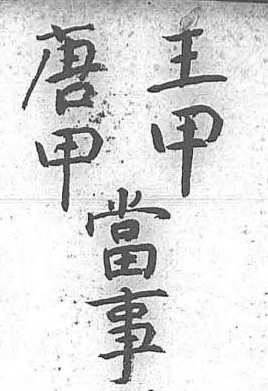 王甲
唐甲
當事